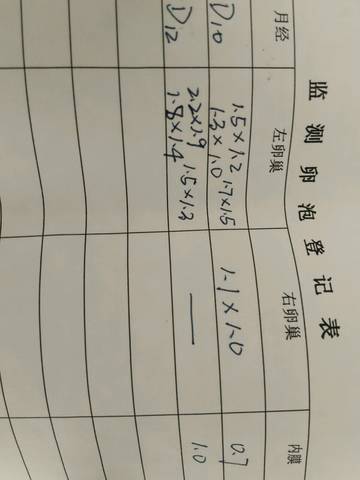 监测卵泡登记表
月经 左卵巢 右卵巢 内膜
D10 1.5×1.2 1.7×1.5 1.1×1.0 0.7
1.3×1.0
D12 2.2×1.9 1.5×1.3 — 1.0
1.8×1.4